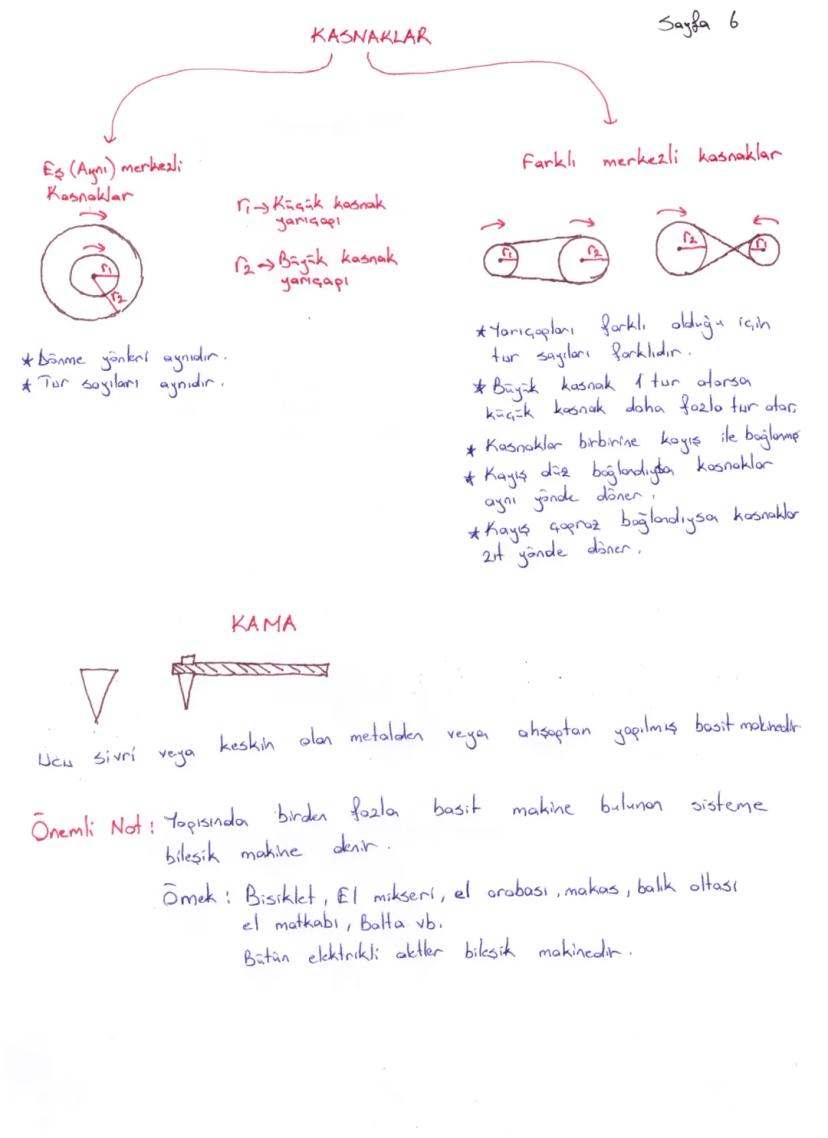 Sayfa 6
KASNAKLAR
Eş (Aynı) merkezli
Kasnaklar
r1 → Küçük kasnak
yarıçapı
r2 → Büyük kasnak
yarıçapı
r1
r2
* Dönme yönleri aynıdır.
* Tur sayıları aynıdır.
Farklı merkezli kasnaklar
r1
r2
r2
r1
* Yarıçapları farklı olduğu için
tur sayıları farklıdır.
* Büyük kasnak 1 tur atarsa
küçük kasnak daha fazla tur atar.
* Kasnaklar birbirine kayış ile bağlanmış
* Kayış düz bağlandıysa kasnaklar
aynı yönde döner.
* Kayış çapraz bağlandıysa kasnaklar
zıt yönde döner.
KAMA
Ucu sivri veya keskin olan metalden veya ahşaptan yapılmış basit makinedir
Önemli Not : Yapısında birden fazla basit makine bulunan sisteme
bileşik makine denir.
Örnek : Bisiklet, El mikseri, el arabası, makas, balık oltası
el matkabı, Balta vb.
Bütün elektrikli aletler bileşik makinedir.